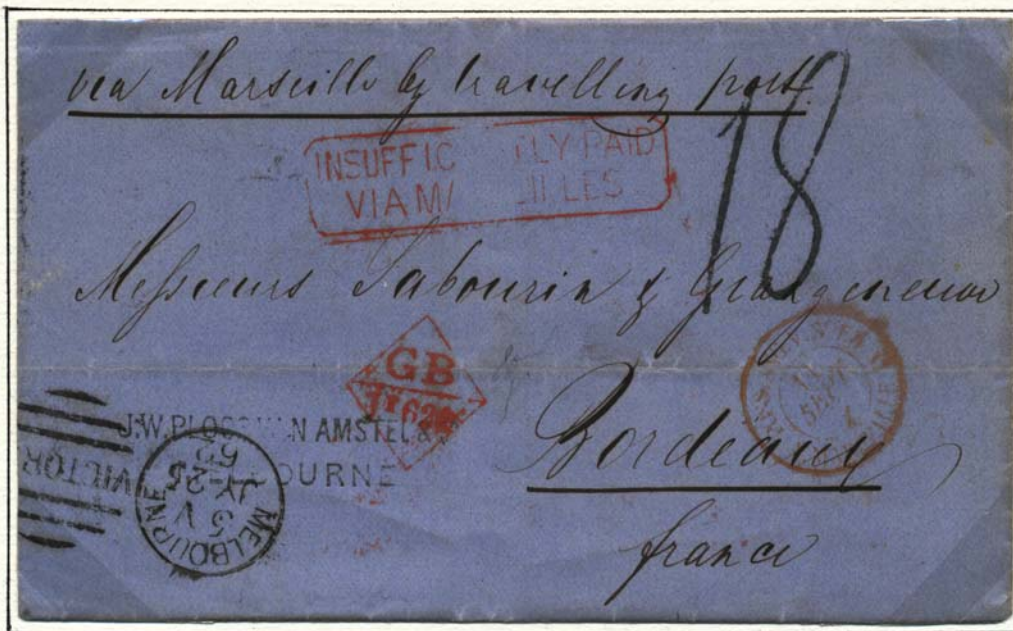 via Marseille by travelling post.
18
INSUFFIC TLY PAID
VIA MA ILLES
Messieurs Sabourin &
GB
1F62
J.W. PLOS N AMSTEL &
BOURNE
VICTOR
MELBOURNE
JY 25
Bordeaux
france